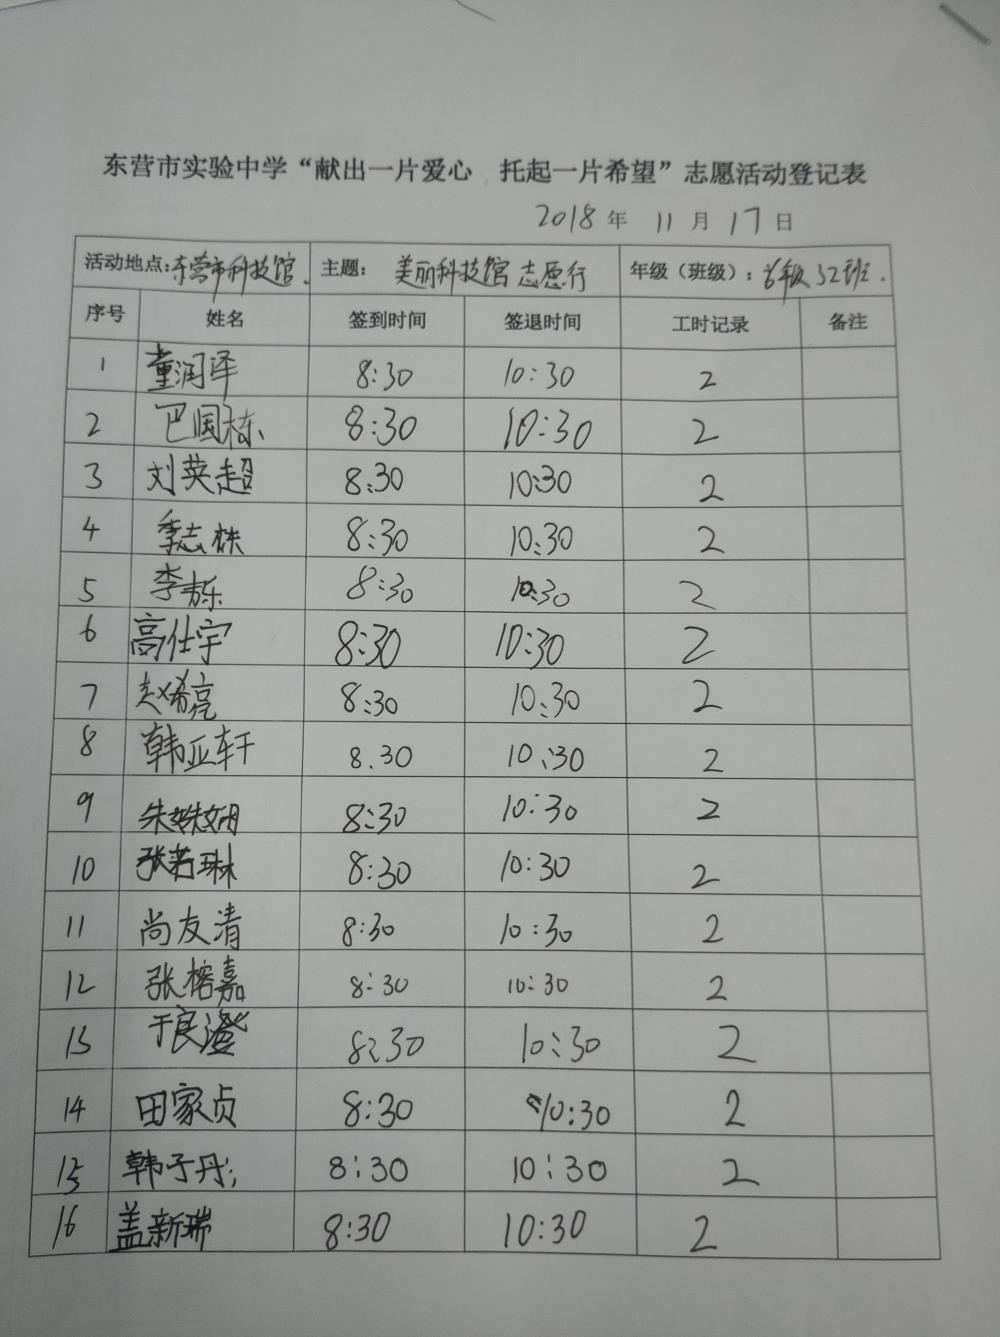 东营市实验中学“献出一片爱心 托起一片希望”志愿活动登记表
2018年 11月17日
活动地点:东营市科技馆. 主题: 美丽科技馆志愿行 年级(班级): 级32班.
序号 姓名 签到时间 签退时间 工时记录 备注
1 董润泽 8:30 10:30 2
2 巴国栋 8:30 10:30 2
3 刘英超 8:30 10:30 2
4 季志栋 8:30 10:30 2
5 李 8:30 10:30 2
6 高仕宇 8:30 10:30 2
7 赵希亮 8:30 10:30 2
8 韩亚轩 8.30 10:30 2
9 朱姝娴 8:30 10:30 2
10 张若琳 8:30 10:30 2
11 尚友清 8:30 10:30 2
12 张榕嘉 8:30 10:30 2
13 于良澄 8:30 10:30 2
14 田家贞 8:30 10:30 2
15 韩子丹 8:30 10:30 2
16 盖新瑞 8:30 10:30 2